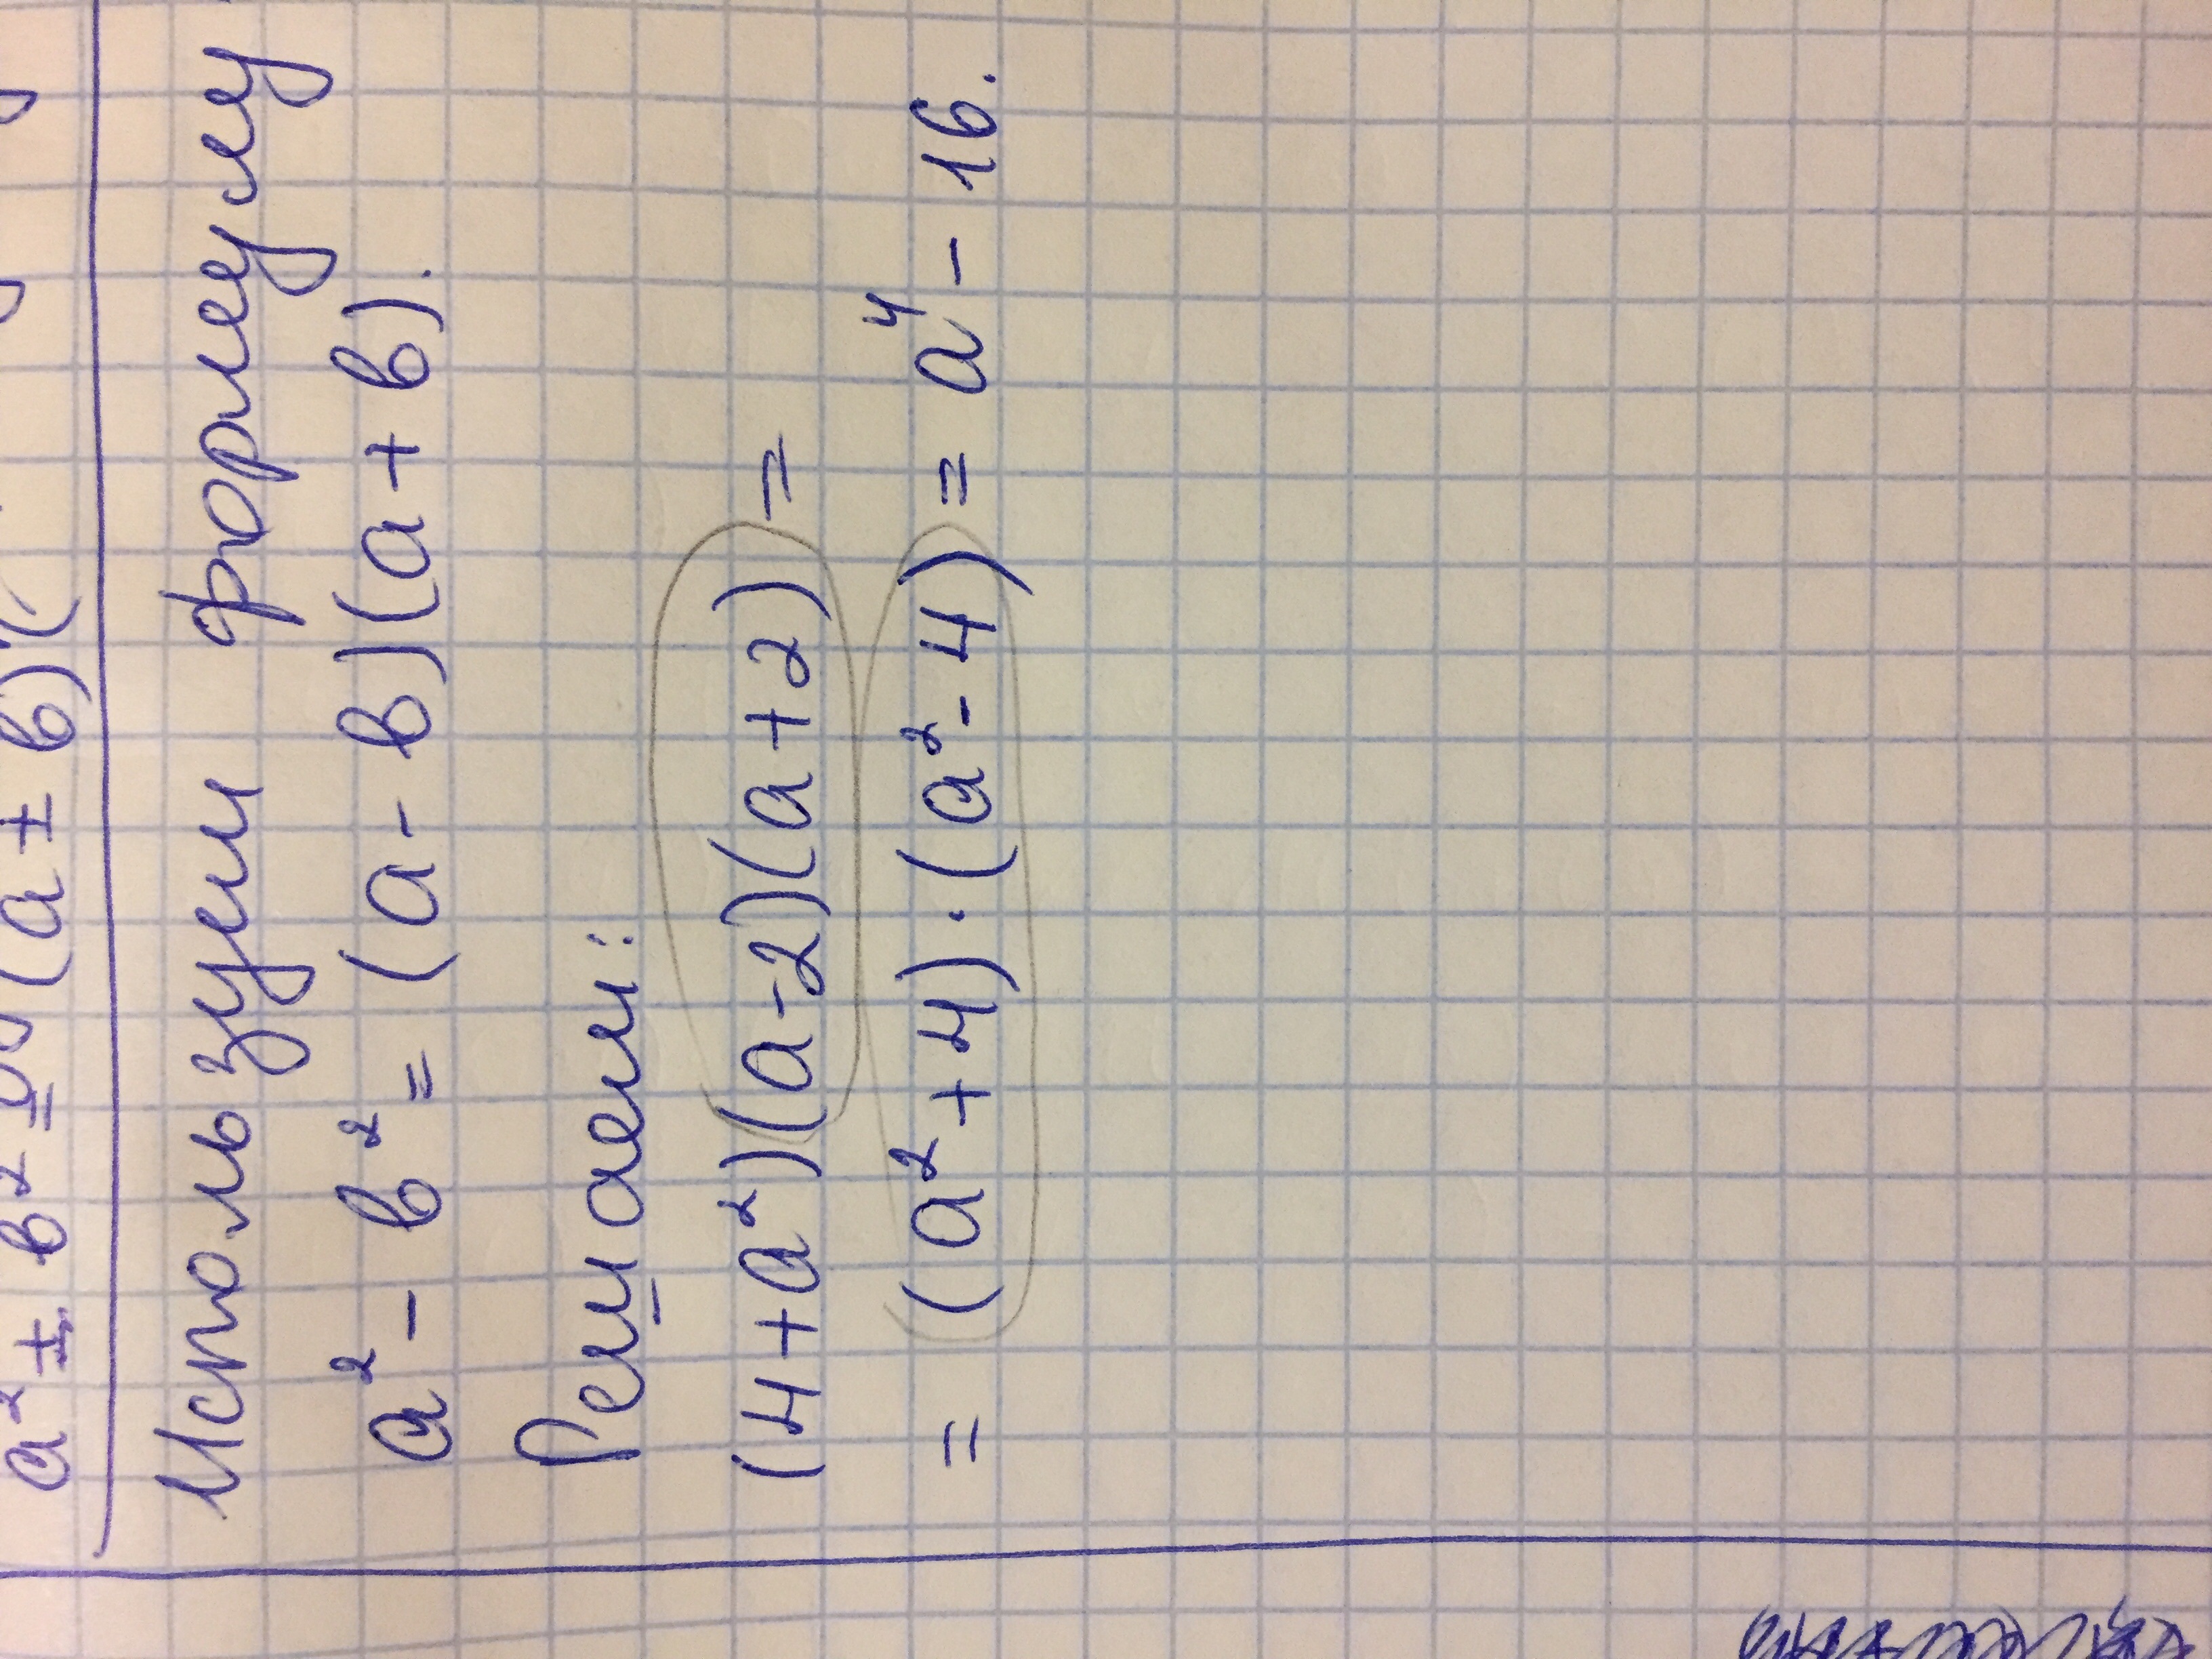 a² ± b² (a ± b)(
Используем формулу
a² - b² = (a - b)(a + b).
Решаем:
(4 + a²)(a - 2)(a + 2) =
= (a² + 4) · (a² - 4) = a⁴ - 16.